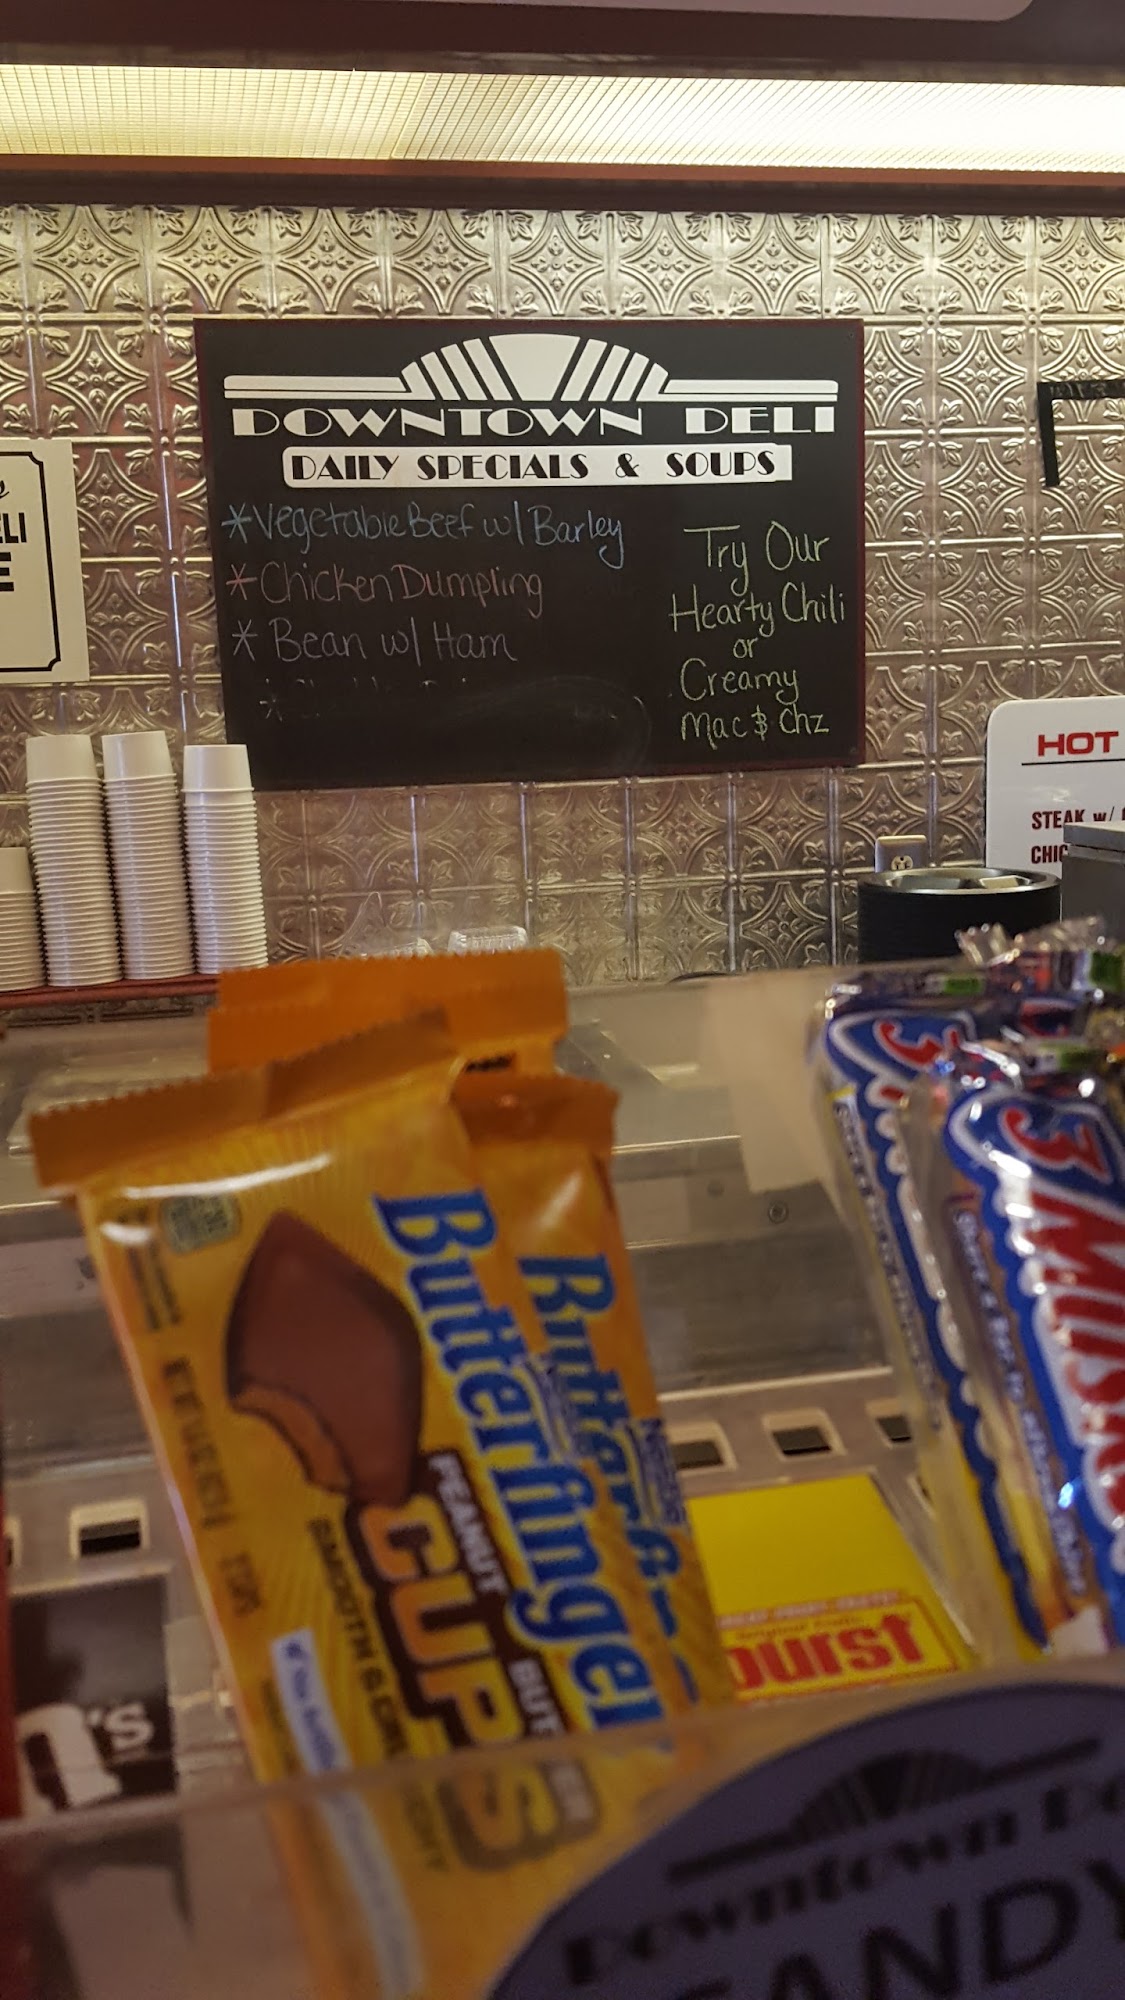 DOWNTOWN DELI
DAILY SPECIALS & SOUPS
*Vegetable Beef w/ Barley
*Chicken Dumpling
* Bean w/ Ham
*
Try Our
Hearty Chili
or
Creamy
Mac & Chz
ELI
E
HOT
STEAK w/
CHIC
Butterfinger
PEANUT BUTTER
CUPS
SMOOTH &
Butterfi
NESTLE
3
3
MUSK
burst
n's
Downtown De
CANDY